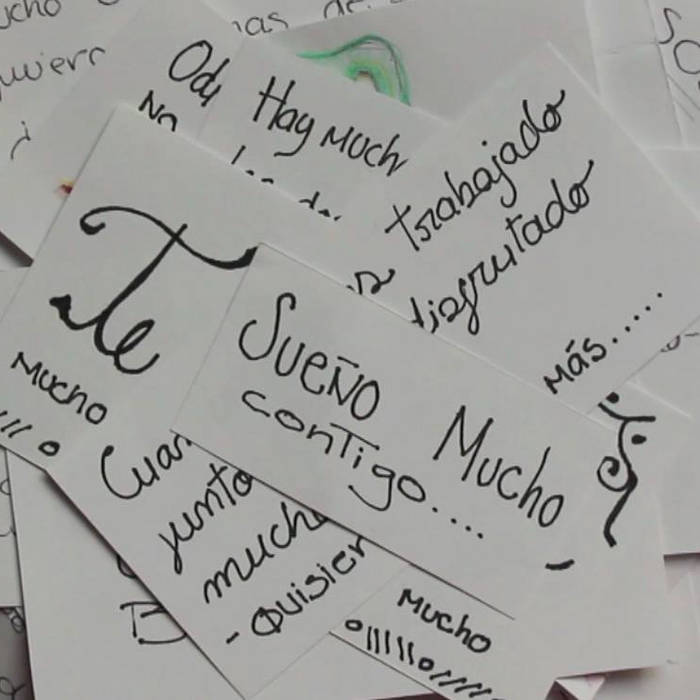 ucho
nas de
quiero
Ody
No
Hay Much
trabajado
disfrutado
más.....
Te
Mucho
Sueño Mucho
contigo....
Cuan
junto
much
- Quisier
Mucho